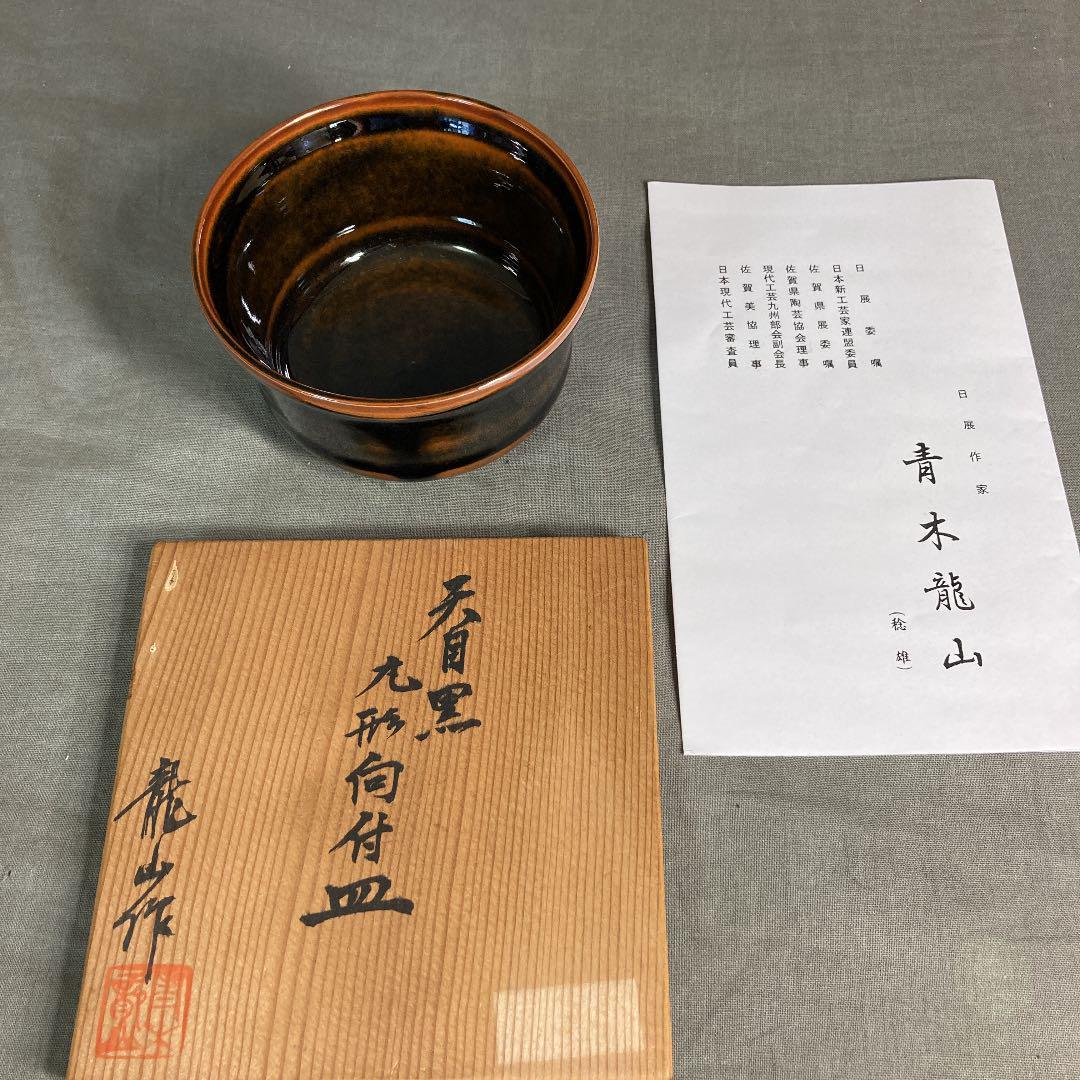 日展委嘱
日本新工芸家連盟委員
佐賀県展委嘱
佐賀県陶芸協会理事
現代工芸九州部会副会長
佐賀美協理事
日本現代工芸審査員
日展作家
青木龍山
(稔雄)
天目黒
丸形向付皿
龍山作